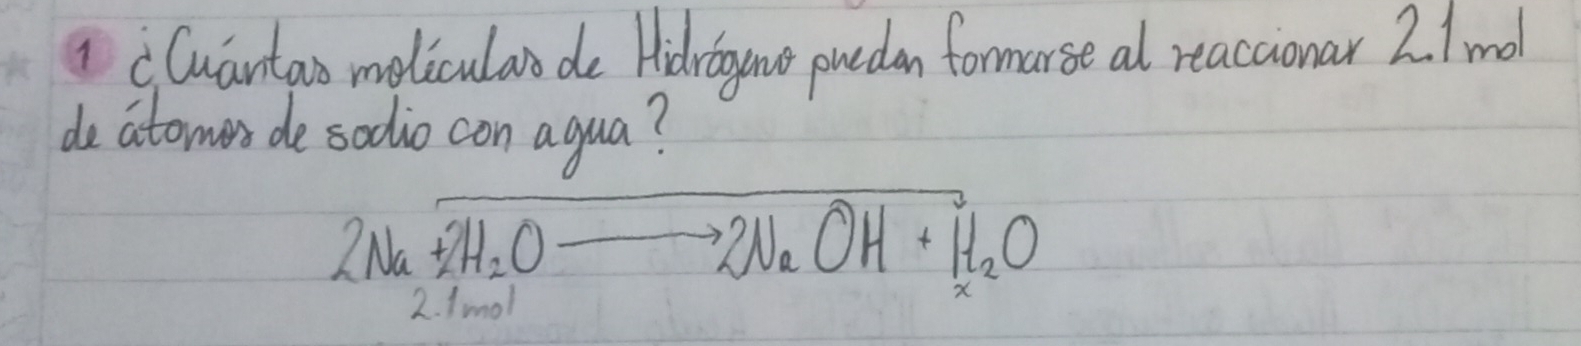 1 ¿Cuántas moléculas de Hidrógeno pueden formarse al reaccionar 2.1 mol
de átomos de sodio con agua?
2Na + 2H₂O → 2Na OH + H₂O
2.1 mol x